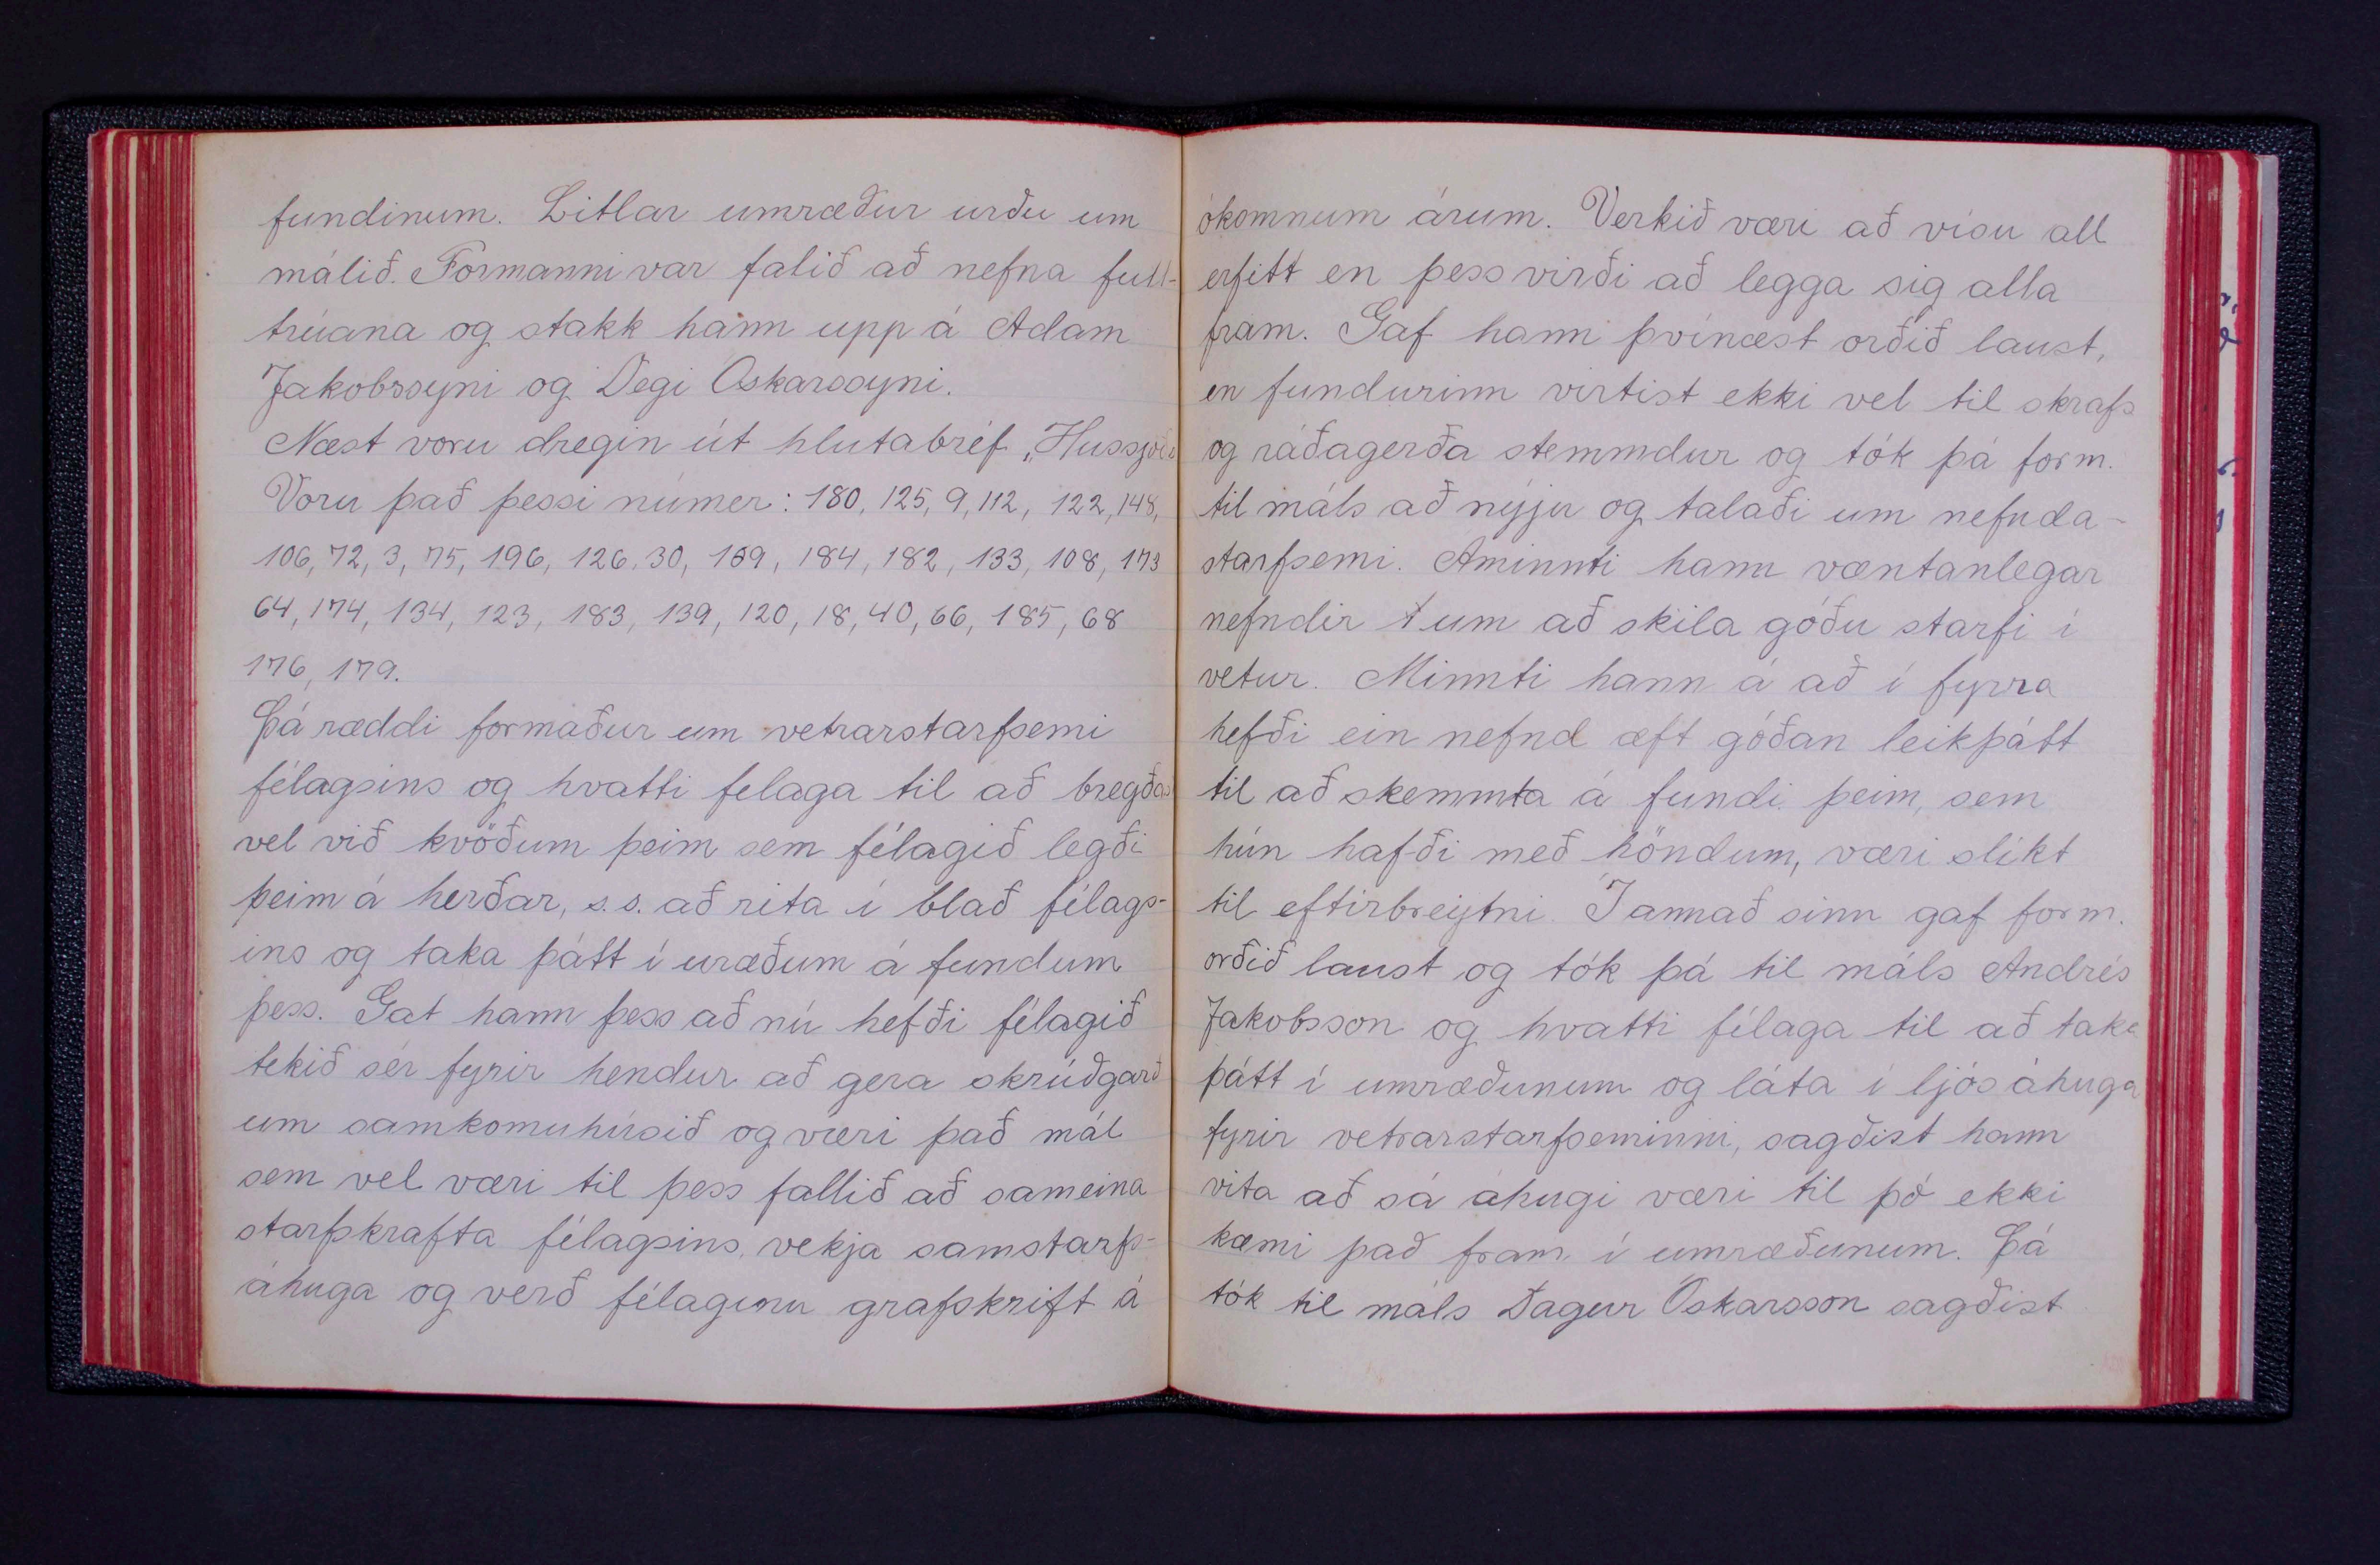 fundinum. Litlar umræður urðu um
málið. Formanni var falið að nefna full-
trúana og stakk hann upp á Adam
Jakobssyni og Degi Óskarssyni.
Næst voru dregin út hlutabréf „Hussjóðs
Voru það þessi númer: 180, 125, 9, 112, 122, 148,
106, 72, 3, 75, 196, 126, 30, 159, 184, 182, 133, 108, 173
64, 174, 134, 123, 183, 139, 120, 18, 40, 66, 185, 68
176, 179.
Þá ræddi formaður um vetrarstarfsemi
félagsins og hvatti felaga til að bregðas
vel við kvöðum þeim sem félagið legði
þeim á herðar, s.s. að rita í blað félags-
ins og taka þátt í uræðum á fundum
þess. Gat hann þess að nú hefði félagið
tekið sér fyrir hendur að gera skrúðgarð
um samkomuhúsið og væri það mál
sem vel væri til þess fallið að sameina
starfskrafta félagsins, vekja samstarfs-
áhuga og verð félaginu grafskrift á
ókomnum árum. Verkið væri að vísu all
erfitt en þess virði að legga sig alla
fram. Gaf hann þvínæst orðið laust,
en fundurinn virtist ekki vel til skrafs
og ráðagerða stemmdur og tók þá form.
til máls að nýju og talaði um nefnda-
starfsemi. Aminnti hann væntanlegar
nefndir um að skila góðu starfi í
vetur. Minnti hann á að í fyrra
hefði ein nefnd æft góðan leikþátt
til að skemmta á fundi þeim, sem
hún hafði með höndum, væri slíkt
til eftirbreytni. I annað sinn gaf form.
orðið laust og tók þá til máls Andrés
Jakobsson og hvatti félaga til að taka
þátt í umræðunum og láta í ljós áhuga
fyrir vetrarstarfseminni, sagðist hann
vita að sá áhugi væri til þó ekki
kæmi það fram í umræðunum. Þá
tók til máls Dagur Óskarsson sagðist